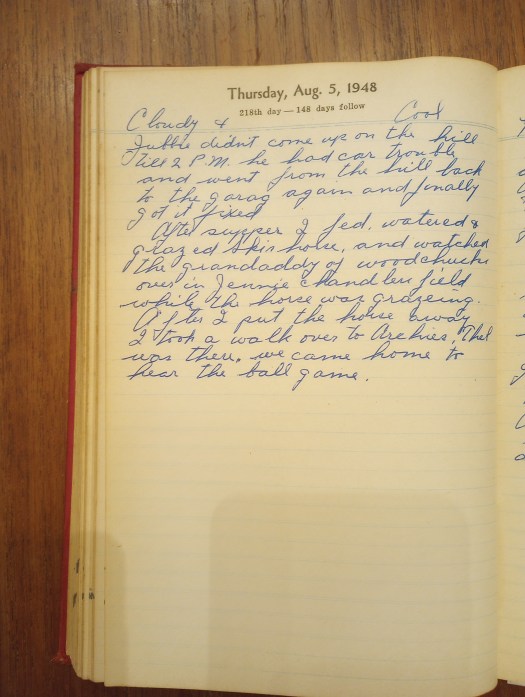 Thursday, Aug. 5, 1948
218th day — 148 days follow
Cloudy & Cool
didn't come up on the hill
till 2 P.M. he had car trouble
and went from the hill back
to the garag again and finally
got it fixed
After supper I fed, watered &
grazed horse, and watched
the grandaddy of woodchucks
over in Jennie Chandlers field
while the horse was grazeing.
After I put the horse away
I took a walk over to Archies, Thel
was there, we came home to
hear the ball game.